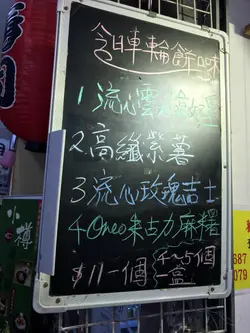 今日車輪餅口味
1流心雲
2高纖紫薯
3.流心玫瑰吉士
4.Oreo朱古力麻糬
$11一個
4~5個
一盒
小樽
687
079